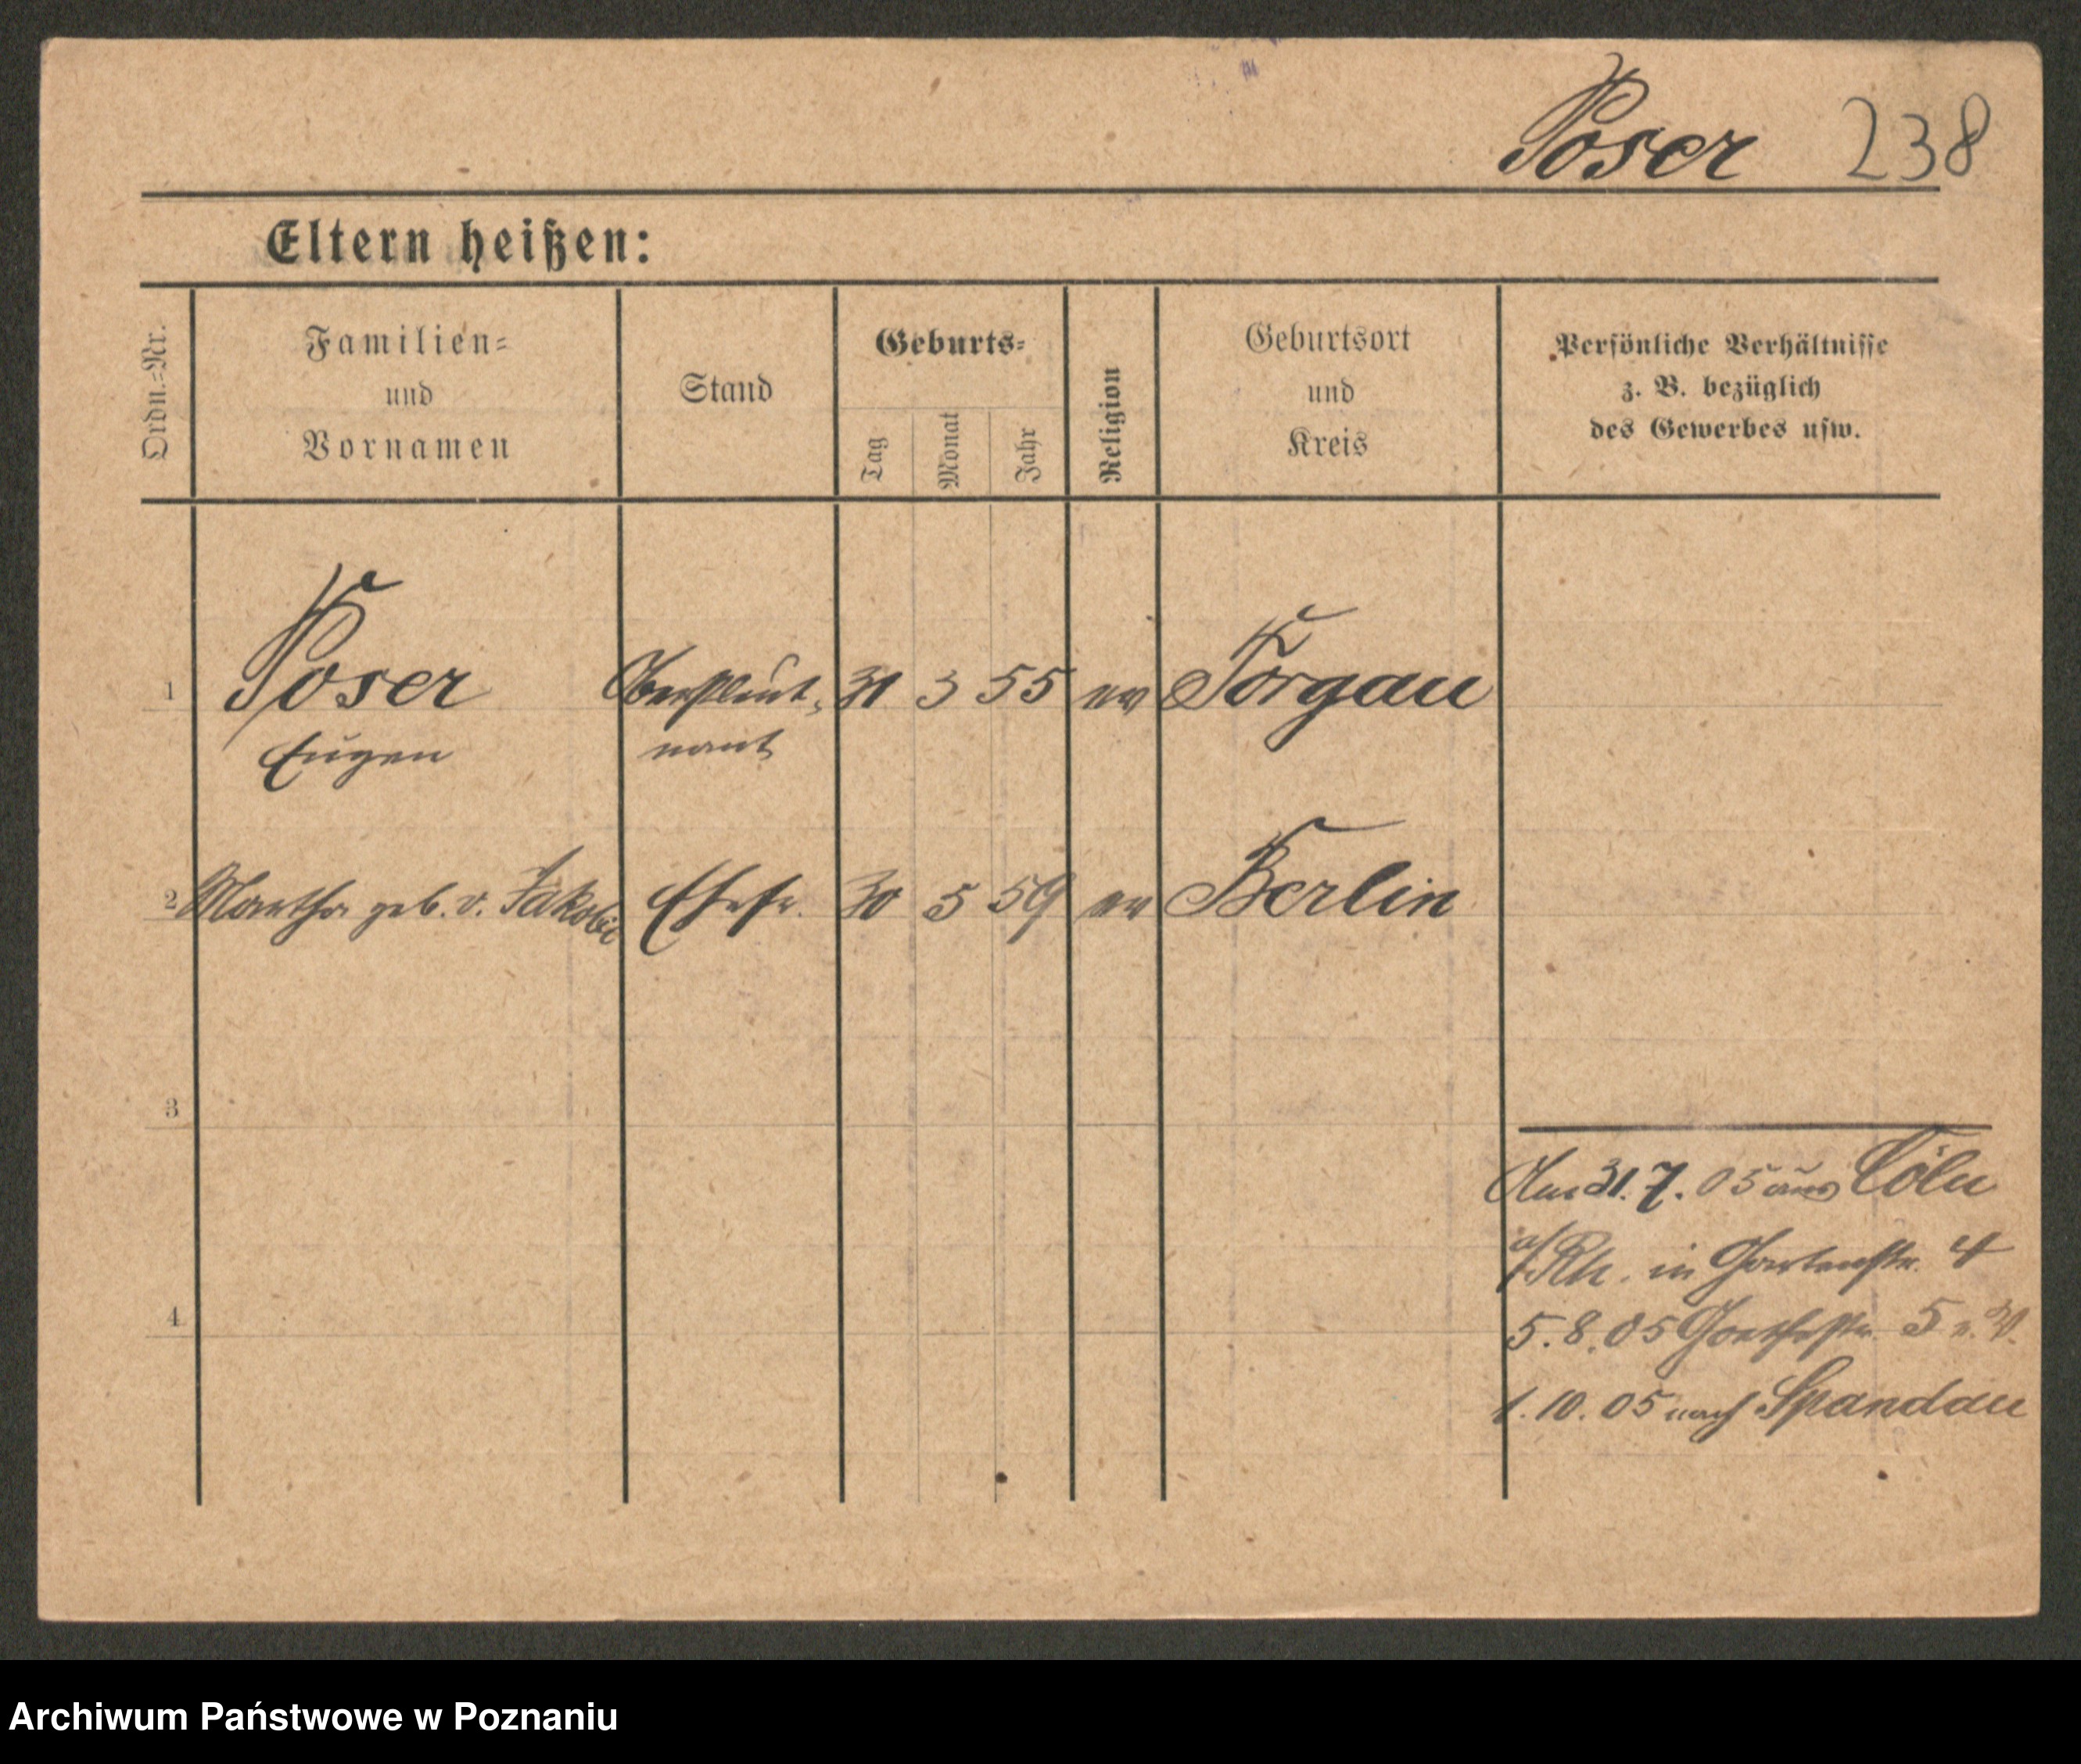 Poser 238
Eltern heißen:
Ordn.=Nr.
Familien=
und
Vornamen
Stand
Geburts=
Tag
Monat
Jahr
Religion
Geburtsort
und
Kreis
Persönliche Verhältnisse
z. B. bezüglich
des Gewerbes usw.
1 Poser Oberstleut- 31 3 55 ev Torgau
Eugen nant
2 Martha geb. v. Ehefr. 30 5 59 ev Berlin
3
Am 31.7.05 aus Cöln
a/Rh. in Gartenstr. 4
4
5.8.05 Goethestr. 5
1.10.05 nach Spandau
Archiwum Państwowe w Poznaniu